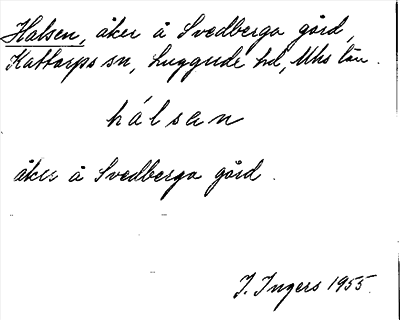 Halsen, åker å Svedberga gård,
Kattarps sn, Luggude hd, Mhs län.
hálsan
åker å Svedberga gård.
I. Ingers 1955.